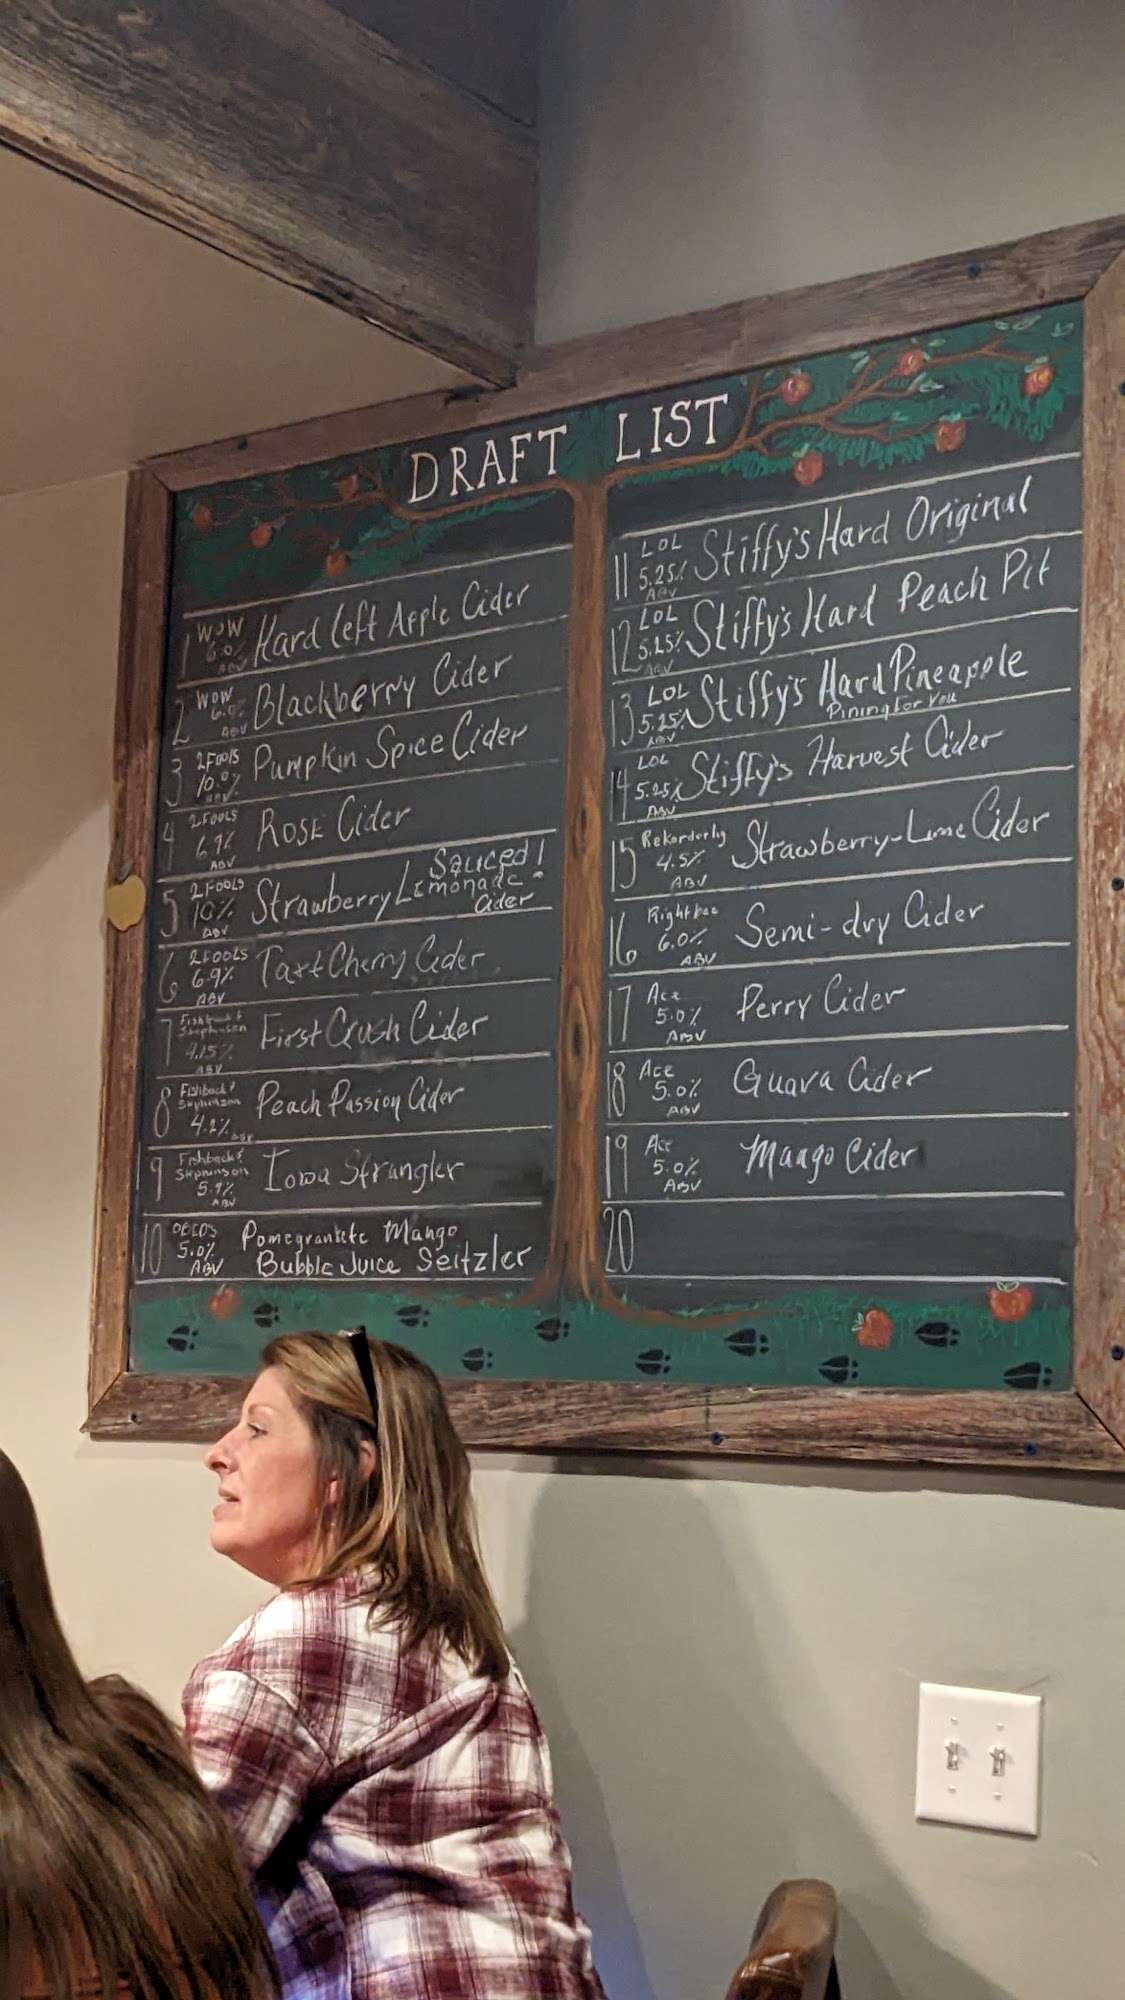 DRAFT LIST
1 WOW 6.0% ABV Hard Left Apple Cider
2 WOW 6.9% ABV Blackberry Cider
3 2FOOLS 10.0% ABV Pumpkin Spice Cider
4 2FOOLS 6.9% ABV ROSE Cider
5 2FOOLS 10% ABV Strawberry Lemonade Sauced! Cider
6 2FOOLS 6.9% ABV Tart Cherry Cider
7 Fishback & Stephenson 4.15% ABV First Crush Cider
8 Fishback & Stephenson 4.2% ABV Peach Passion Cider
9 Fishback & Stephenson 5.9% ABV Iowa Strangler
10 5.0% ABV Pomegranite Mango
Bubble Juice Seitzler
11 LOL 5.25% ABV Stiffy's Hard Original
12 LOL 5.25% ABV Stiffy's Hard Peach Pit
13 LOL 5.25% ABV Stiffy's Hard Pineapple
Pining for You
14 LOL 5.25% ABV Stiffy's Harvest Cider
15 Rekorderlig 4.5% ABV Strawberry-Lime Cider
16 Rightbee 6.0% ABV Semi-dry Cider
17 Ace 5.0% ABV Perry Cider
18 Ace 5.0% ABV Guava Cider
19 Ace 5.0% ABV Mango Cider
20